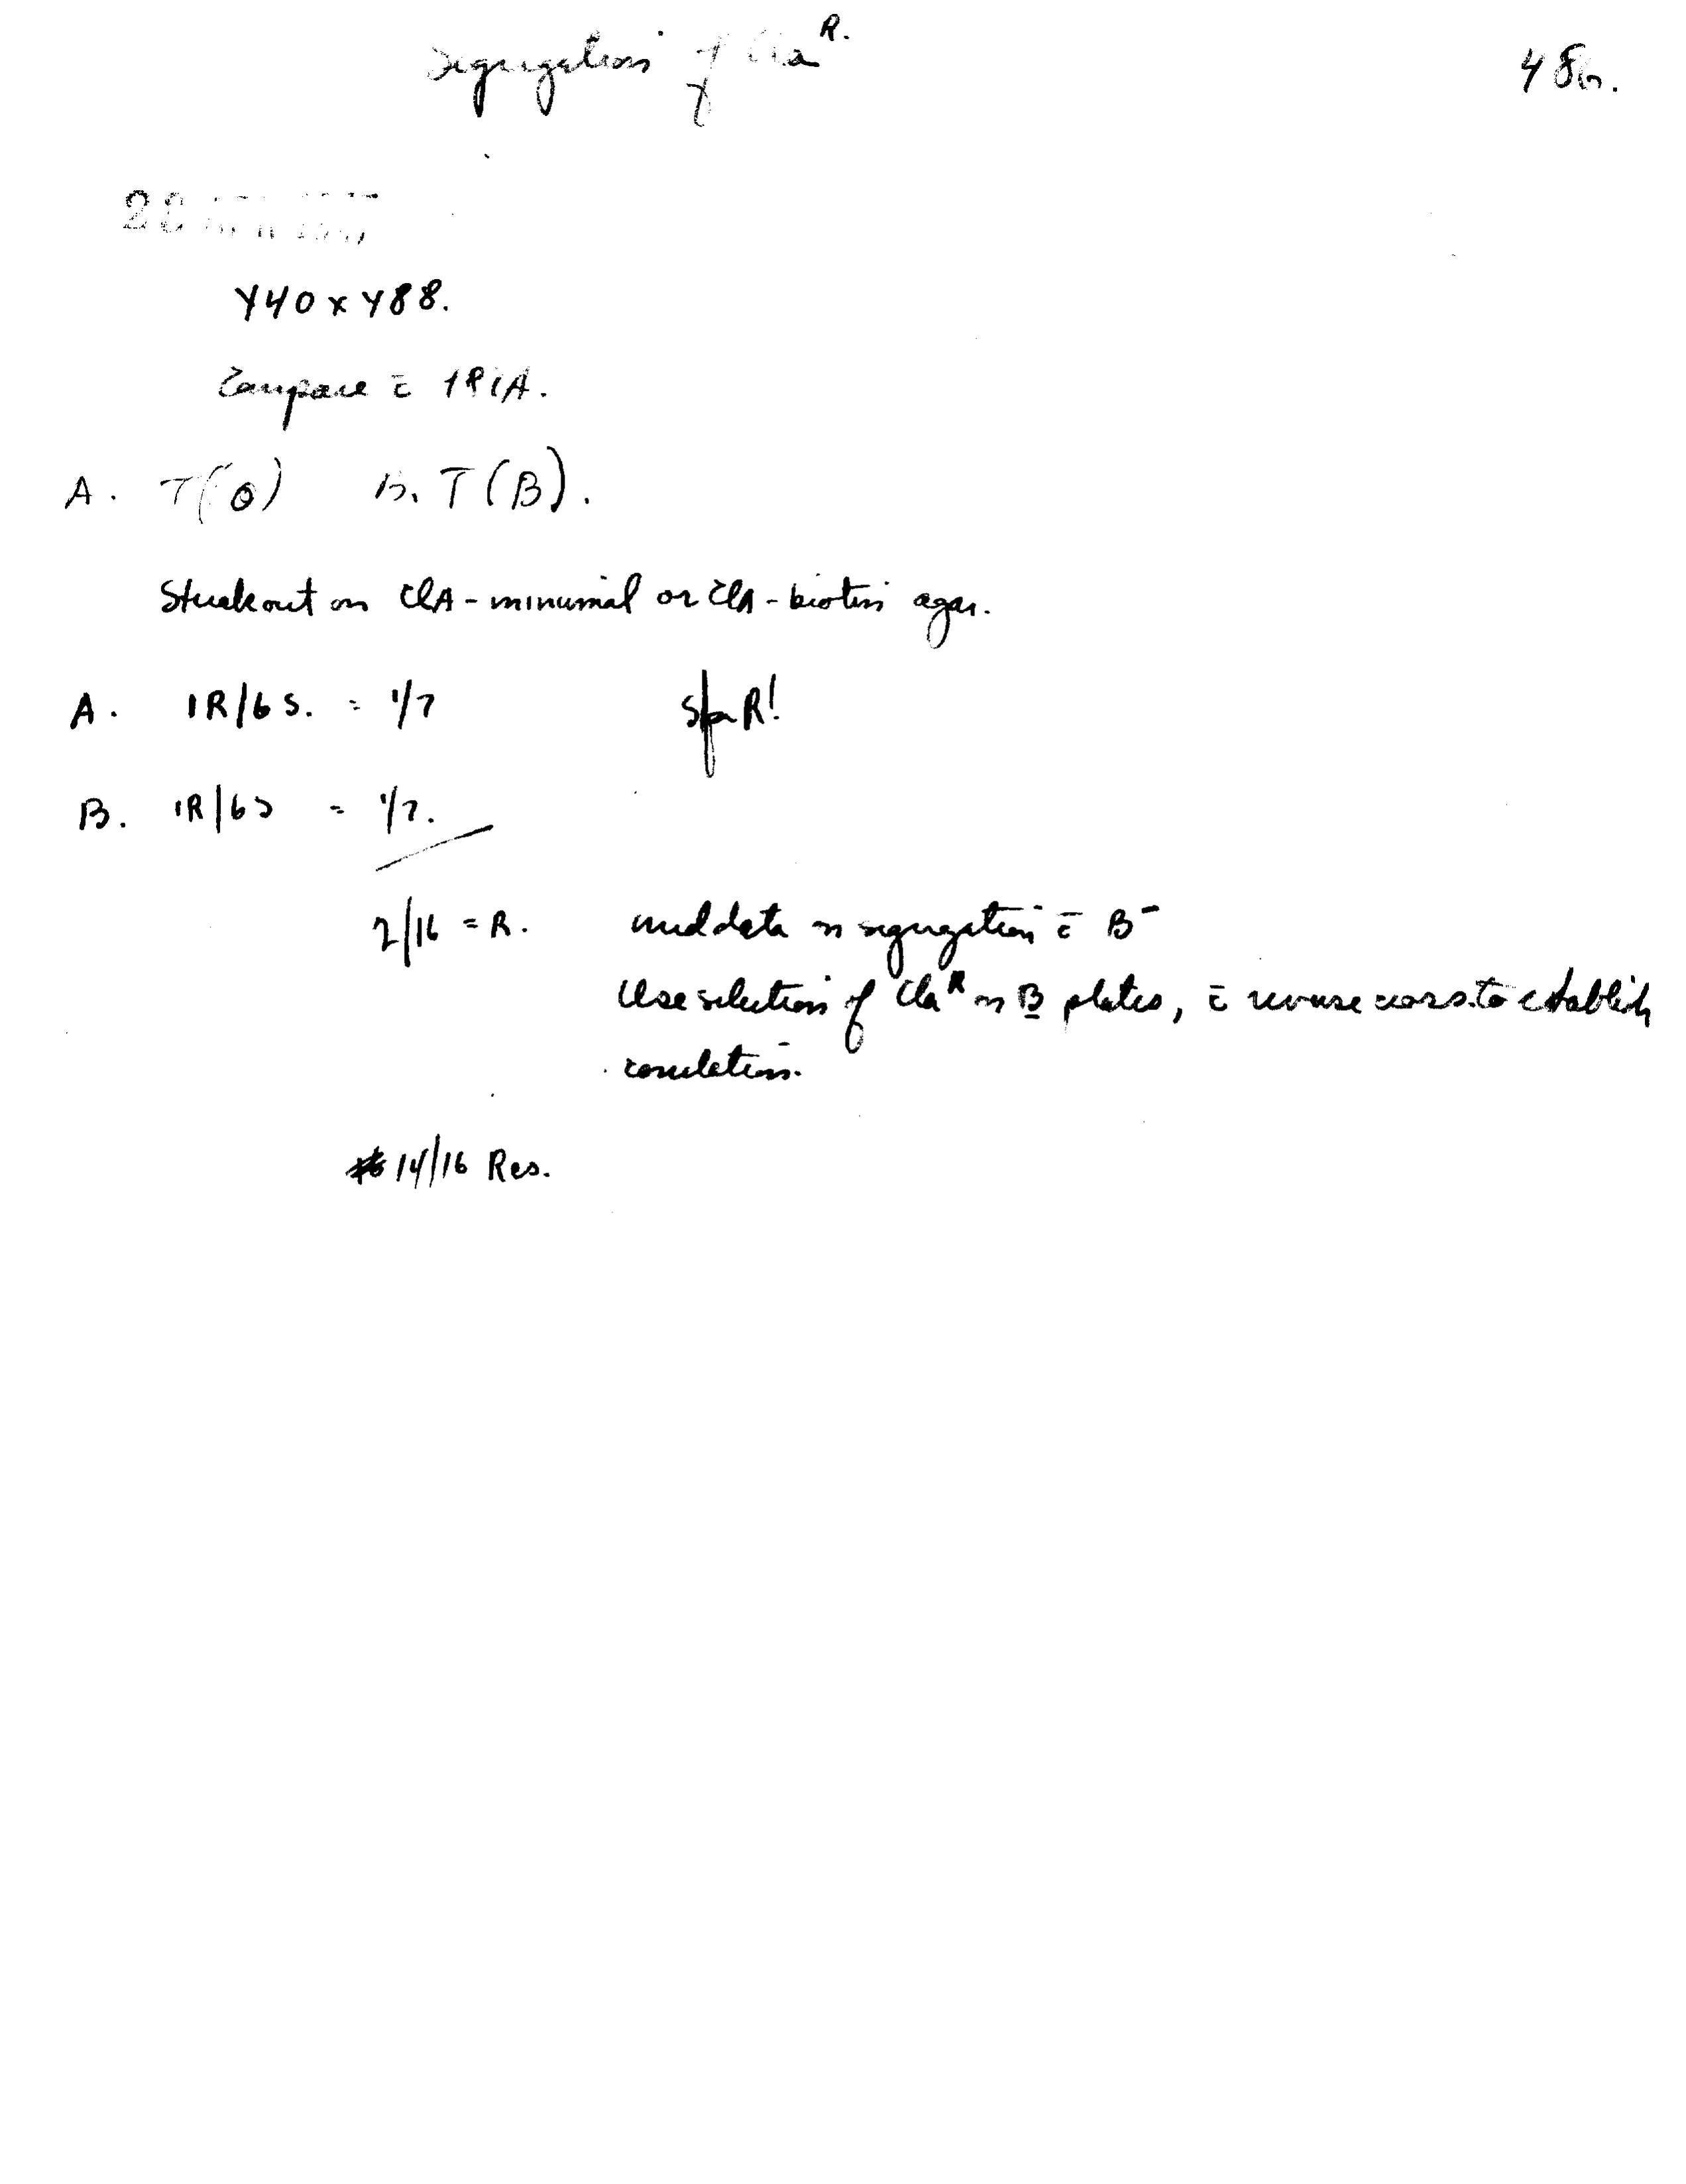 Segregation of Cla R.
48
Y40 x Y88.
Compare c̄
A. T(0) B. T(B).
Streak out on ClA-minimal or ClA-biotin agar.
A. 1R/6S. = 1/7 R!
B. 1R/6S = 1/7.
2/16 = R. need data on segregation c̄ B-
Use selection of Cla R on B plates, c̄ reverse cross to establish
correlation.
14/16 Res.